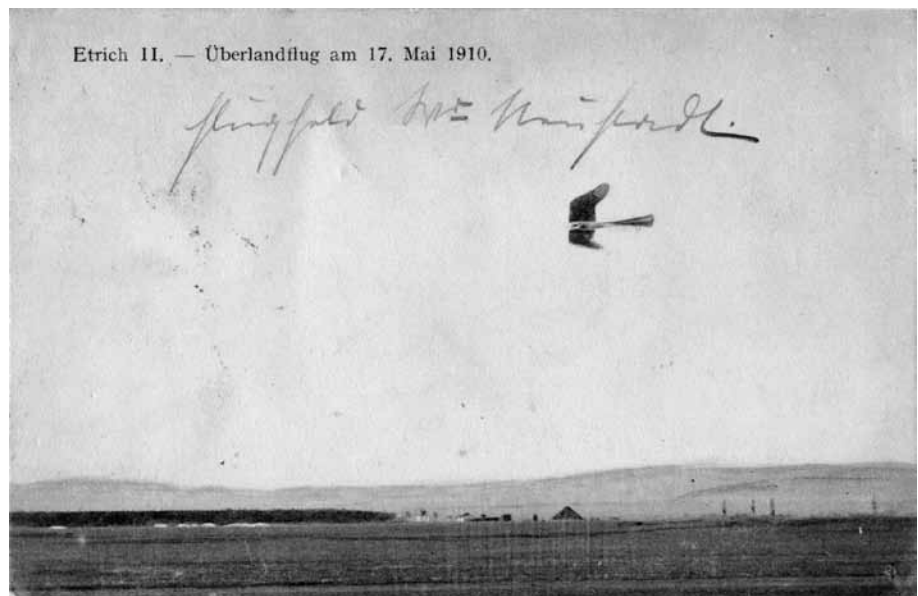 Etrich II. — Überlandflug am 17. Mai 1910.
Flugfeld Wr Neustadt.